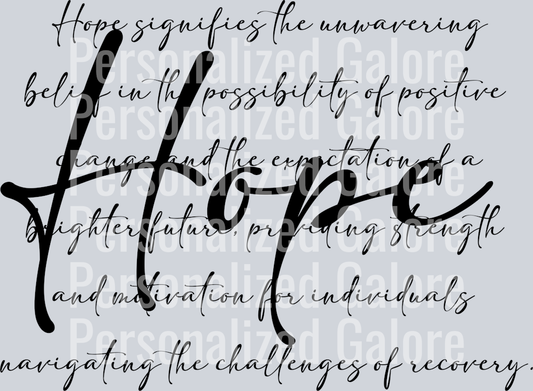 Hope signifies the unwavering
belief in the possibility of positive
change and the expectation of a
brighter future, providing strength
and motivation for individuals
navigating the challenges of recovery.
Hope
Personalized Galore
Personalized Galore
Personalized Galore
Personalized Galore
Personalized Galore
Personalized Galore